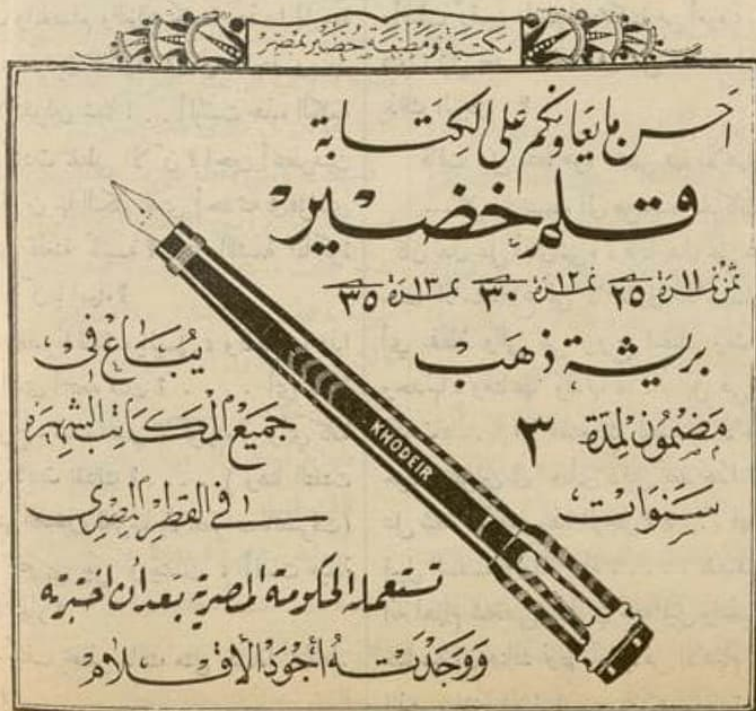 مكتبة ومطبعة خضير بمصر
احسن ما يعاونكم على الكتابة
قلم خضير
ثمن نمرة ١١ ٢٥ نمرة ١٢ ٣٠ نمرة ١٣ ٣٥
بريشة ذهب
مضمون لمدة ٣
سنوات
يباع فى
جميع المكاتب الشهيرة
فى القطر المصرى
KHODEIR
تستعمله الحكومة المصرية بعد أن اختبرته
ووجدته أجود الأقلام